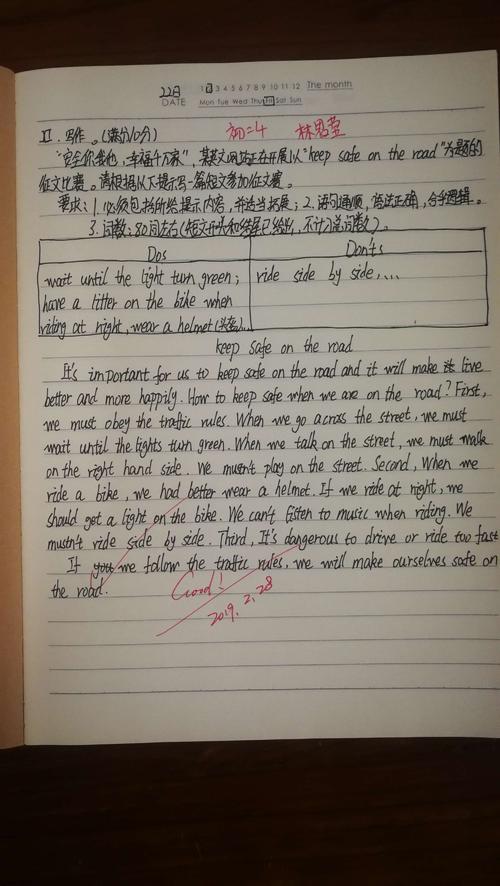 22日 1 2 3 4 5 6 7 8 9 10 11 12 The month
DATE Mon Tue Wed Thu Fri Sat Sun
II. 写作。(满分10分) 初二4
"安全你我他,幸福千万家",某英文网站正在开展以"keep safe on the road"为题的
征文比赛。请根据以下提示写一篇短文参加征文赛。
要求:1.必须包括所给提示内容,并适当拓展;2.语句通顺,语法正确,合乎逻辑。
3.词数:80词左右(短文开头和结尾已给出,不计入总词数)。
Dos Don'ts
wait until the light turn green; ride side by side,...
have a litter on the bike when
riding at right, wear a helmet(头盔)...
keep safe on the road
It's important for us to keep safe on the road and it will make live
better and more happily. How to keep safe when we are on the road? First,
we must obey the traffic rules. When we go across the street, we must
wait until the lights turn green. When we talk on the street, we must walk
on the right hand side. We mustn't play on the street. Second, When we
ride a bike, we had better wear a helmet. If we ride at right, we
should get a light on the bike. We can't listen to music when riding. We
mustn't ride side by side. Third, It's dangerous to drive or ride too fast
If we follow the traffic rules, we will make ourselves safe on
the road.
Good!
2019.2.28